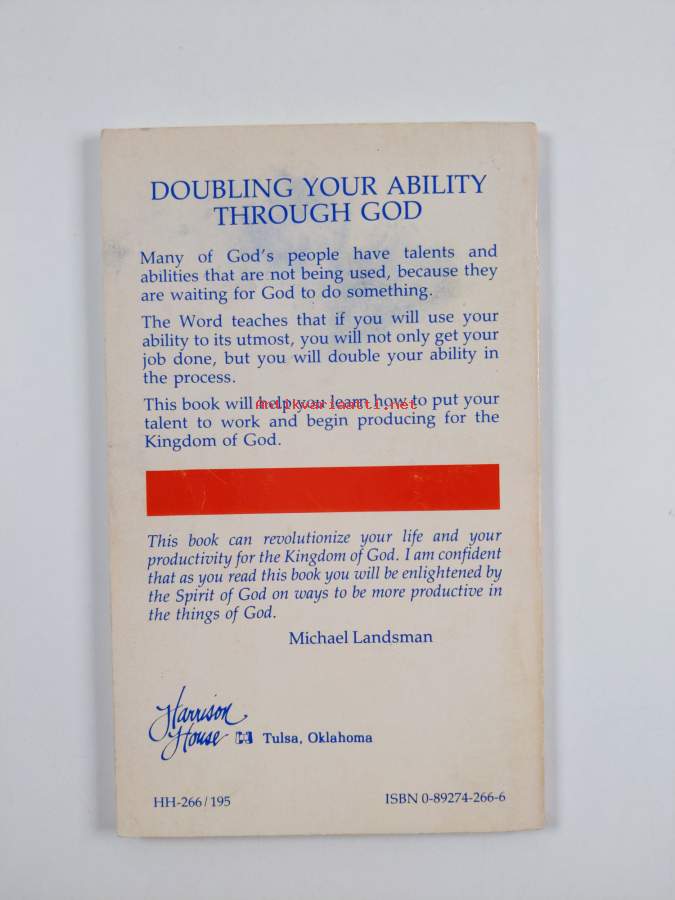 DOUBLING YOUR ABILITY
THROUGH GOD
Many of God's people have talents and
abilities that are not being used, because they
are waiting for God to do something.
The Word teaches that if you will use your
ability to its utmost, you will not only get your
job done, but you will double your ability in
the process.
This book will help you learn how to put your
Antikvariaatti.net
talent to work and begin producing for the
Kingdom of God.
This book can revolutionize your life and your
productivity for the Kingdom of God. I am confident
that as you read this book you will be enlightened by
the Spirit of God on ways to be more productive in
the things of God.
Michael Landsman
Harrison
House
Tulsa, Oklahoma
HH-266/195
ISBN 0-89274-266-6